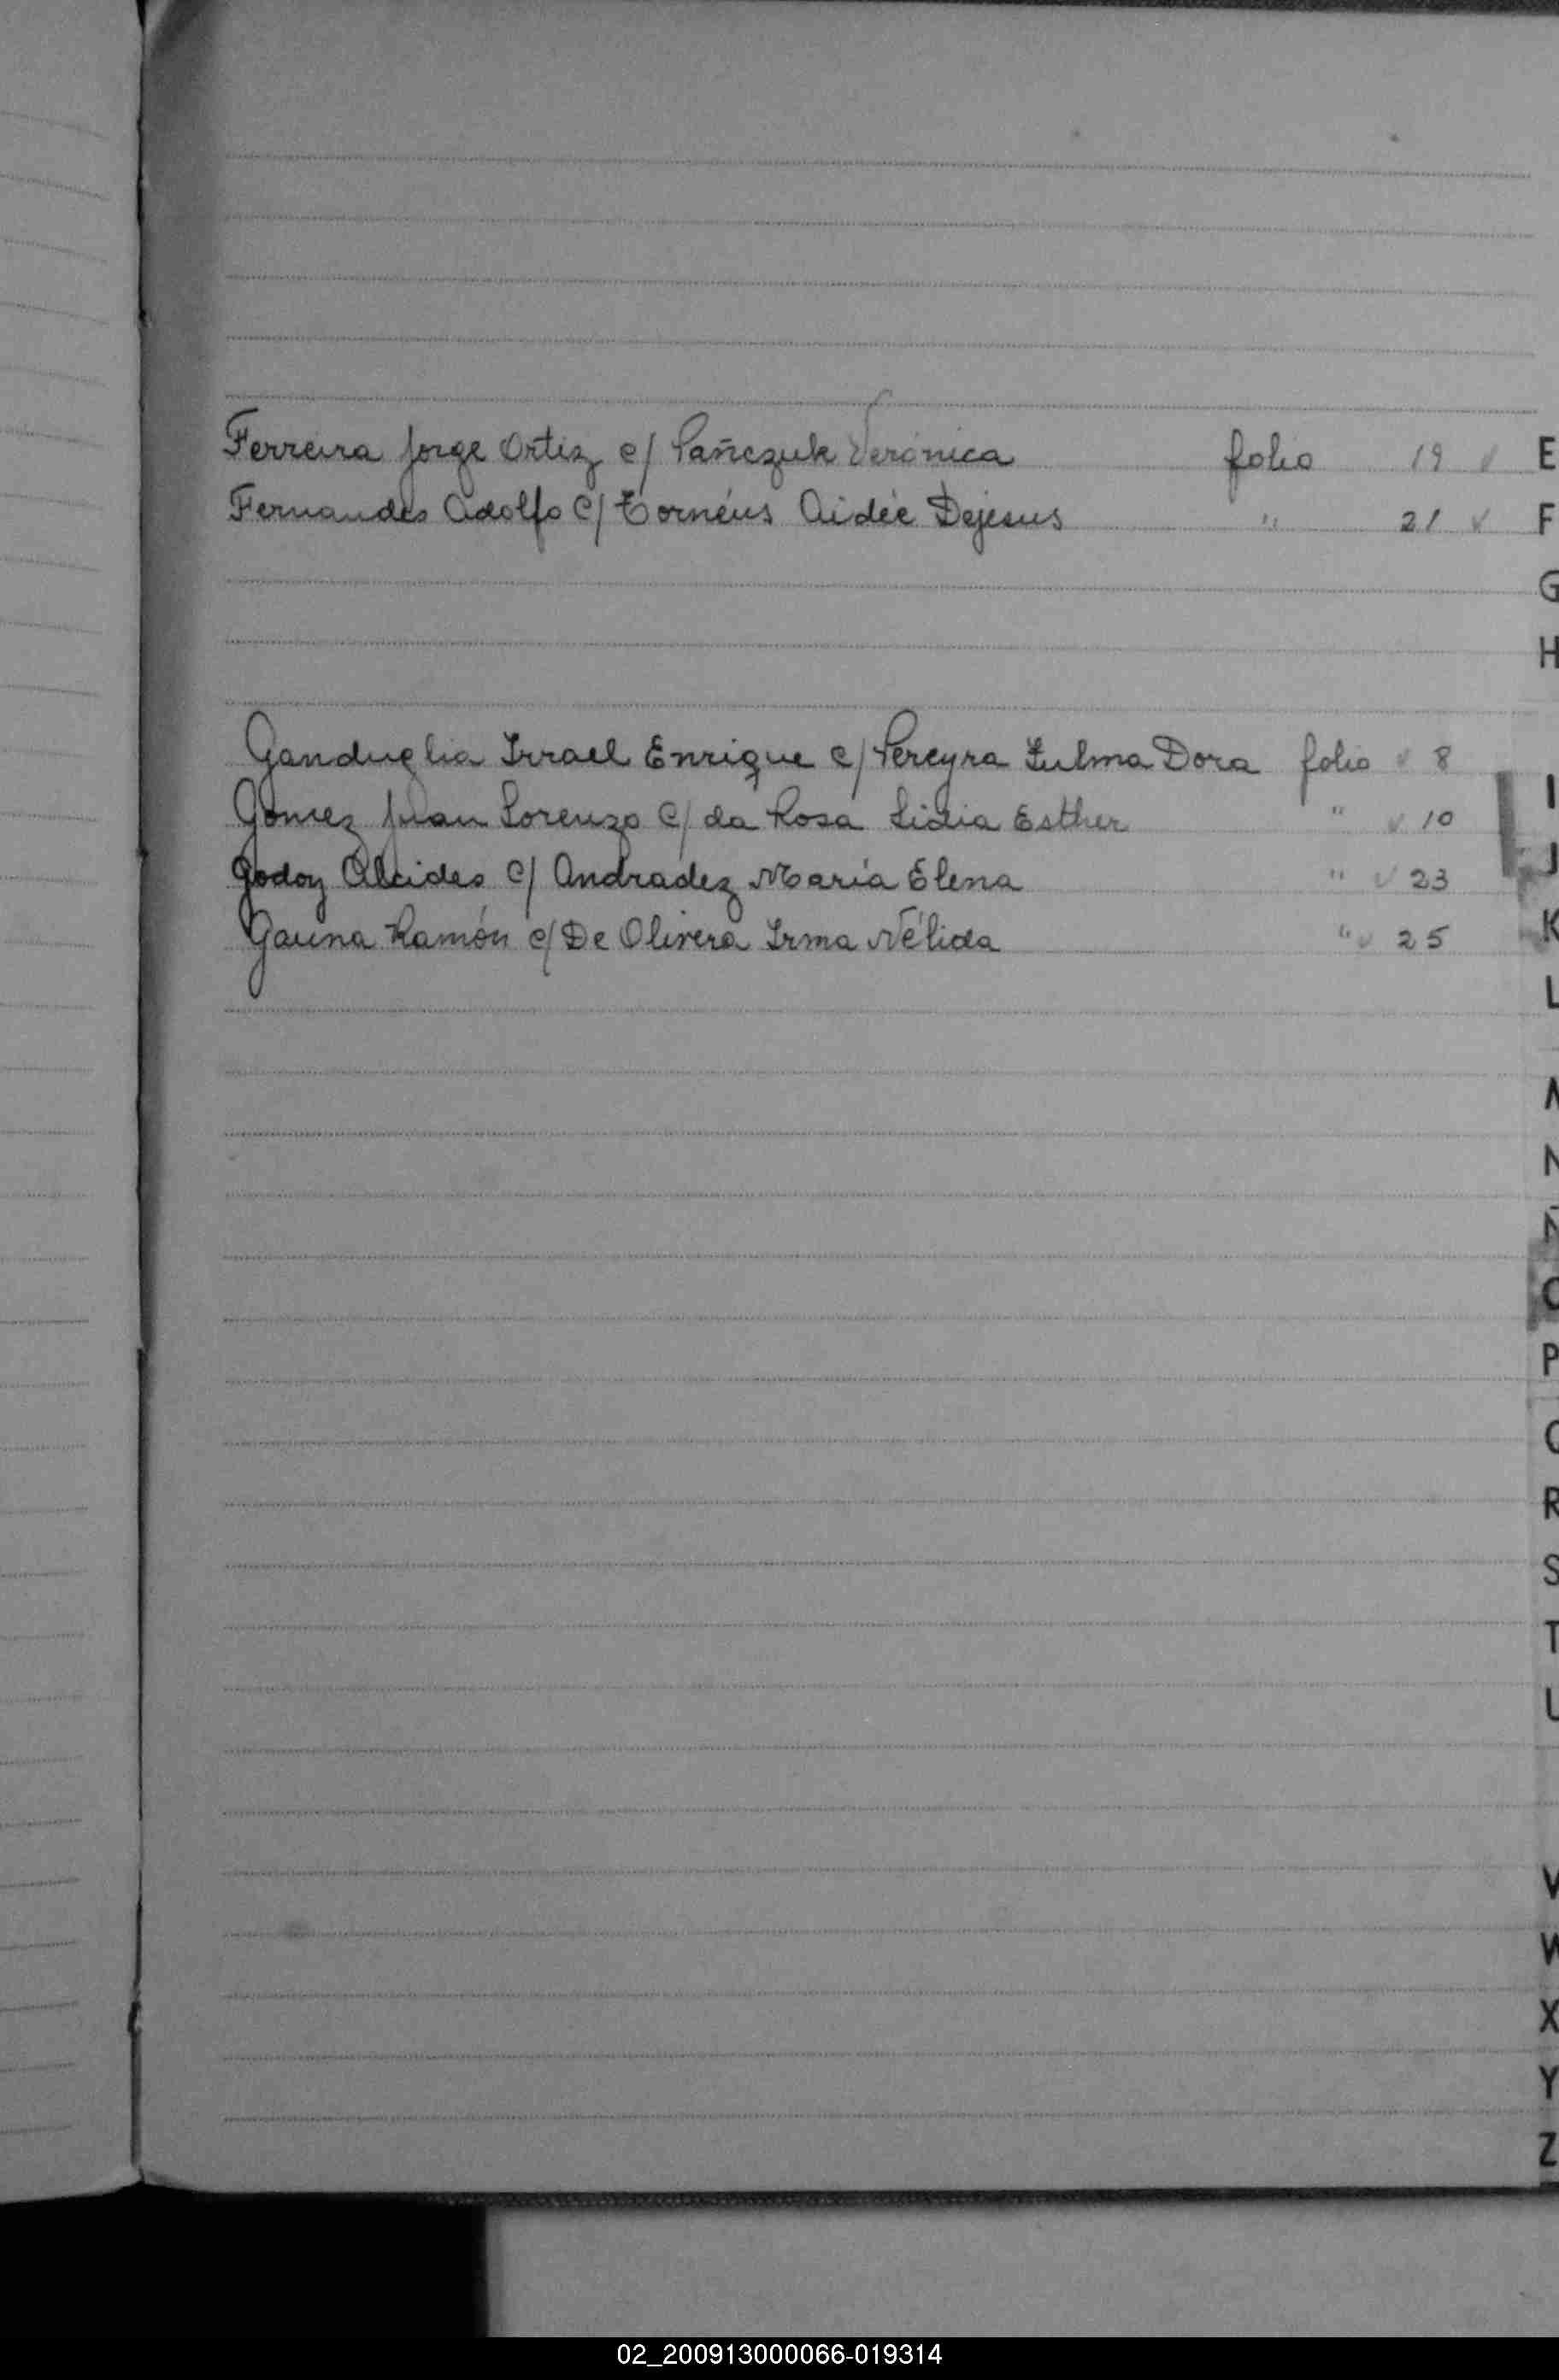 Ferreira Jorge Ortiz c/ Pañczuk Verónica folio 19 ✓ E
Fernandes Adolfo c/ Cornéus Aidée Dejesus " 21 ✓ F
G
H
Ganduglia Israel Enrique c/ Pereyra Zulma Dora folio ✓ 8
I
Gomez Juan Lorenzo c/ da Rosa Lidia Esther " ✓ 10
J
Godoy Alcides c/ Andradez María Elena " ✓ 23
Gauna Ramón c/ De Olivera Irma Nélida " ✓ 25
K
L
M
N
Ñ
O
P
Q
R
S
T
U
V
W
X
Y
Z
02_200913000066-019314